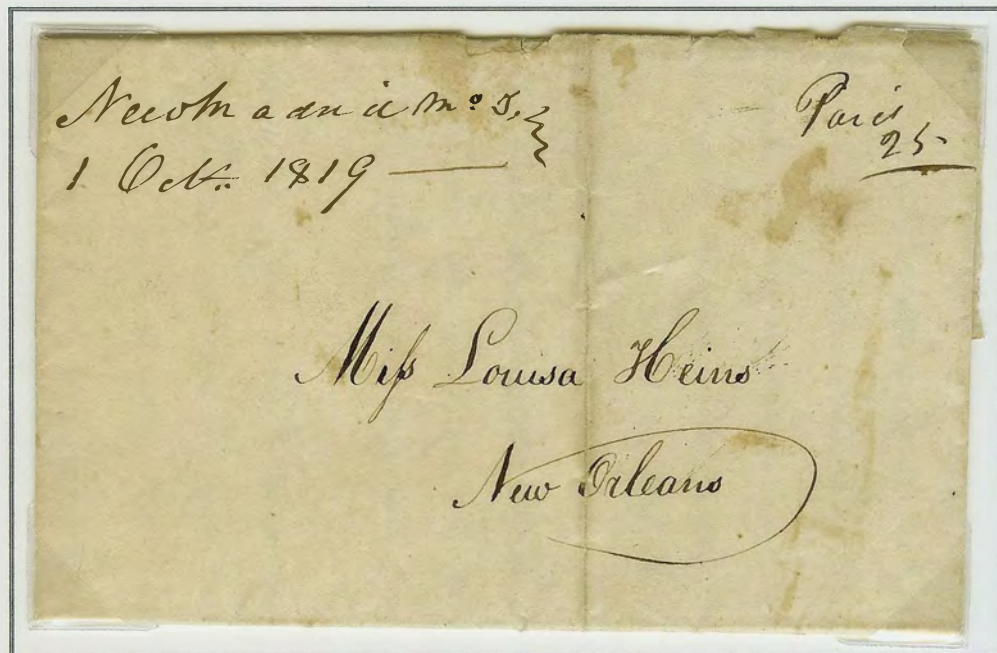 New Madrid Mo T.
1 Oct. 1819
Paid
25
Miss Louisa Heins
New Orleans